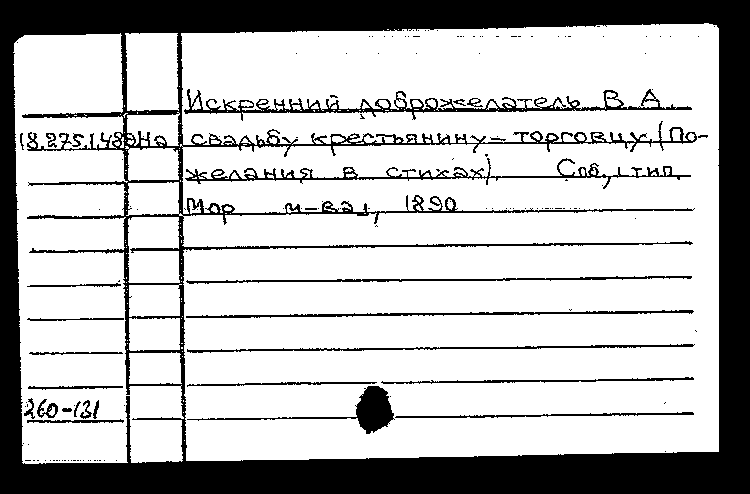 Искренний доброжелатель В. А.
18.275.1.489 На свадьбу крестьянину-торговцу. (По-
желания в стихах). Спб., тип.
Мор м-ва, 1890
260-131